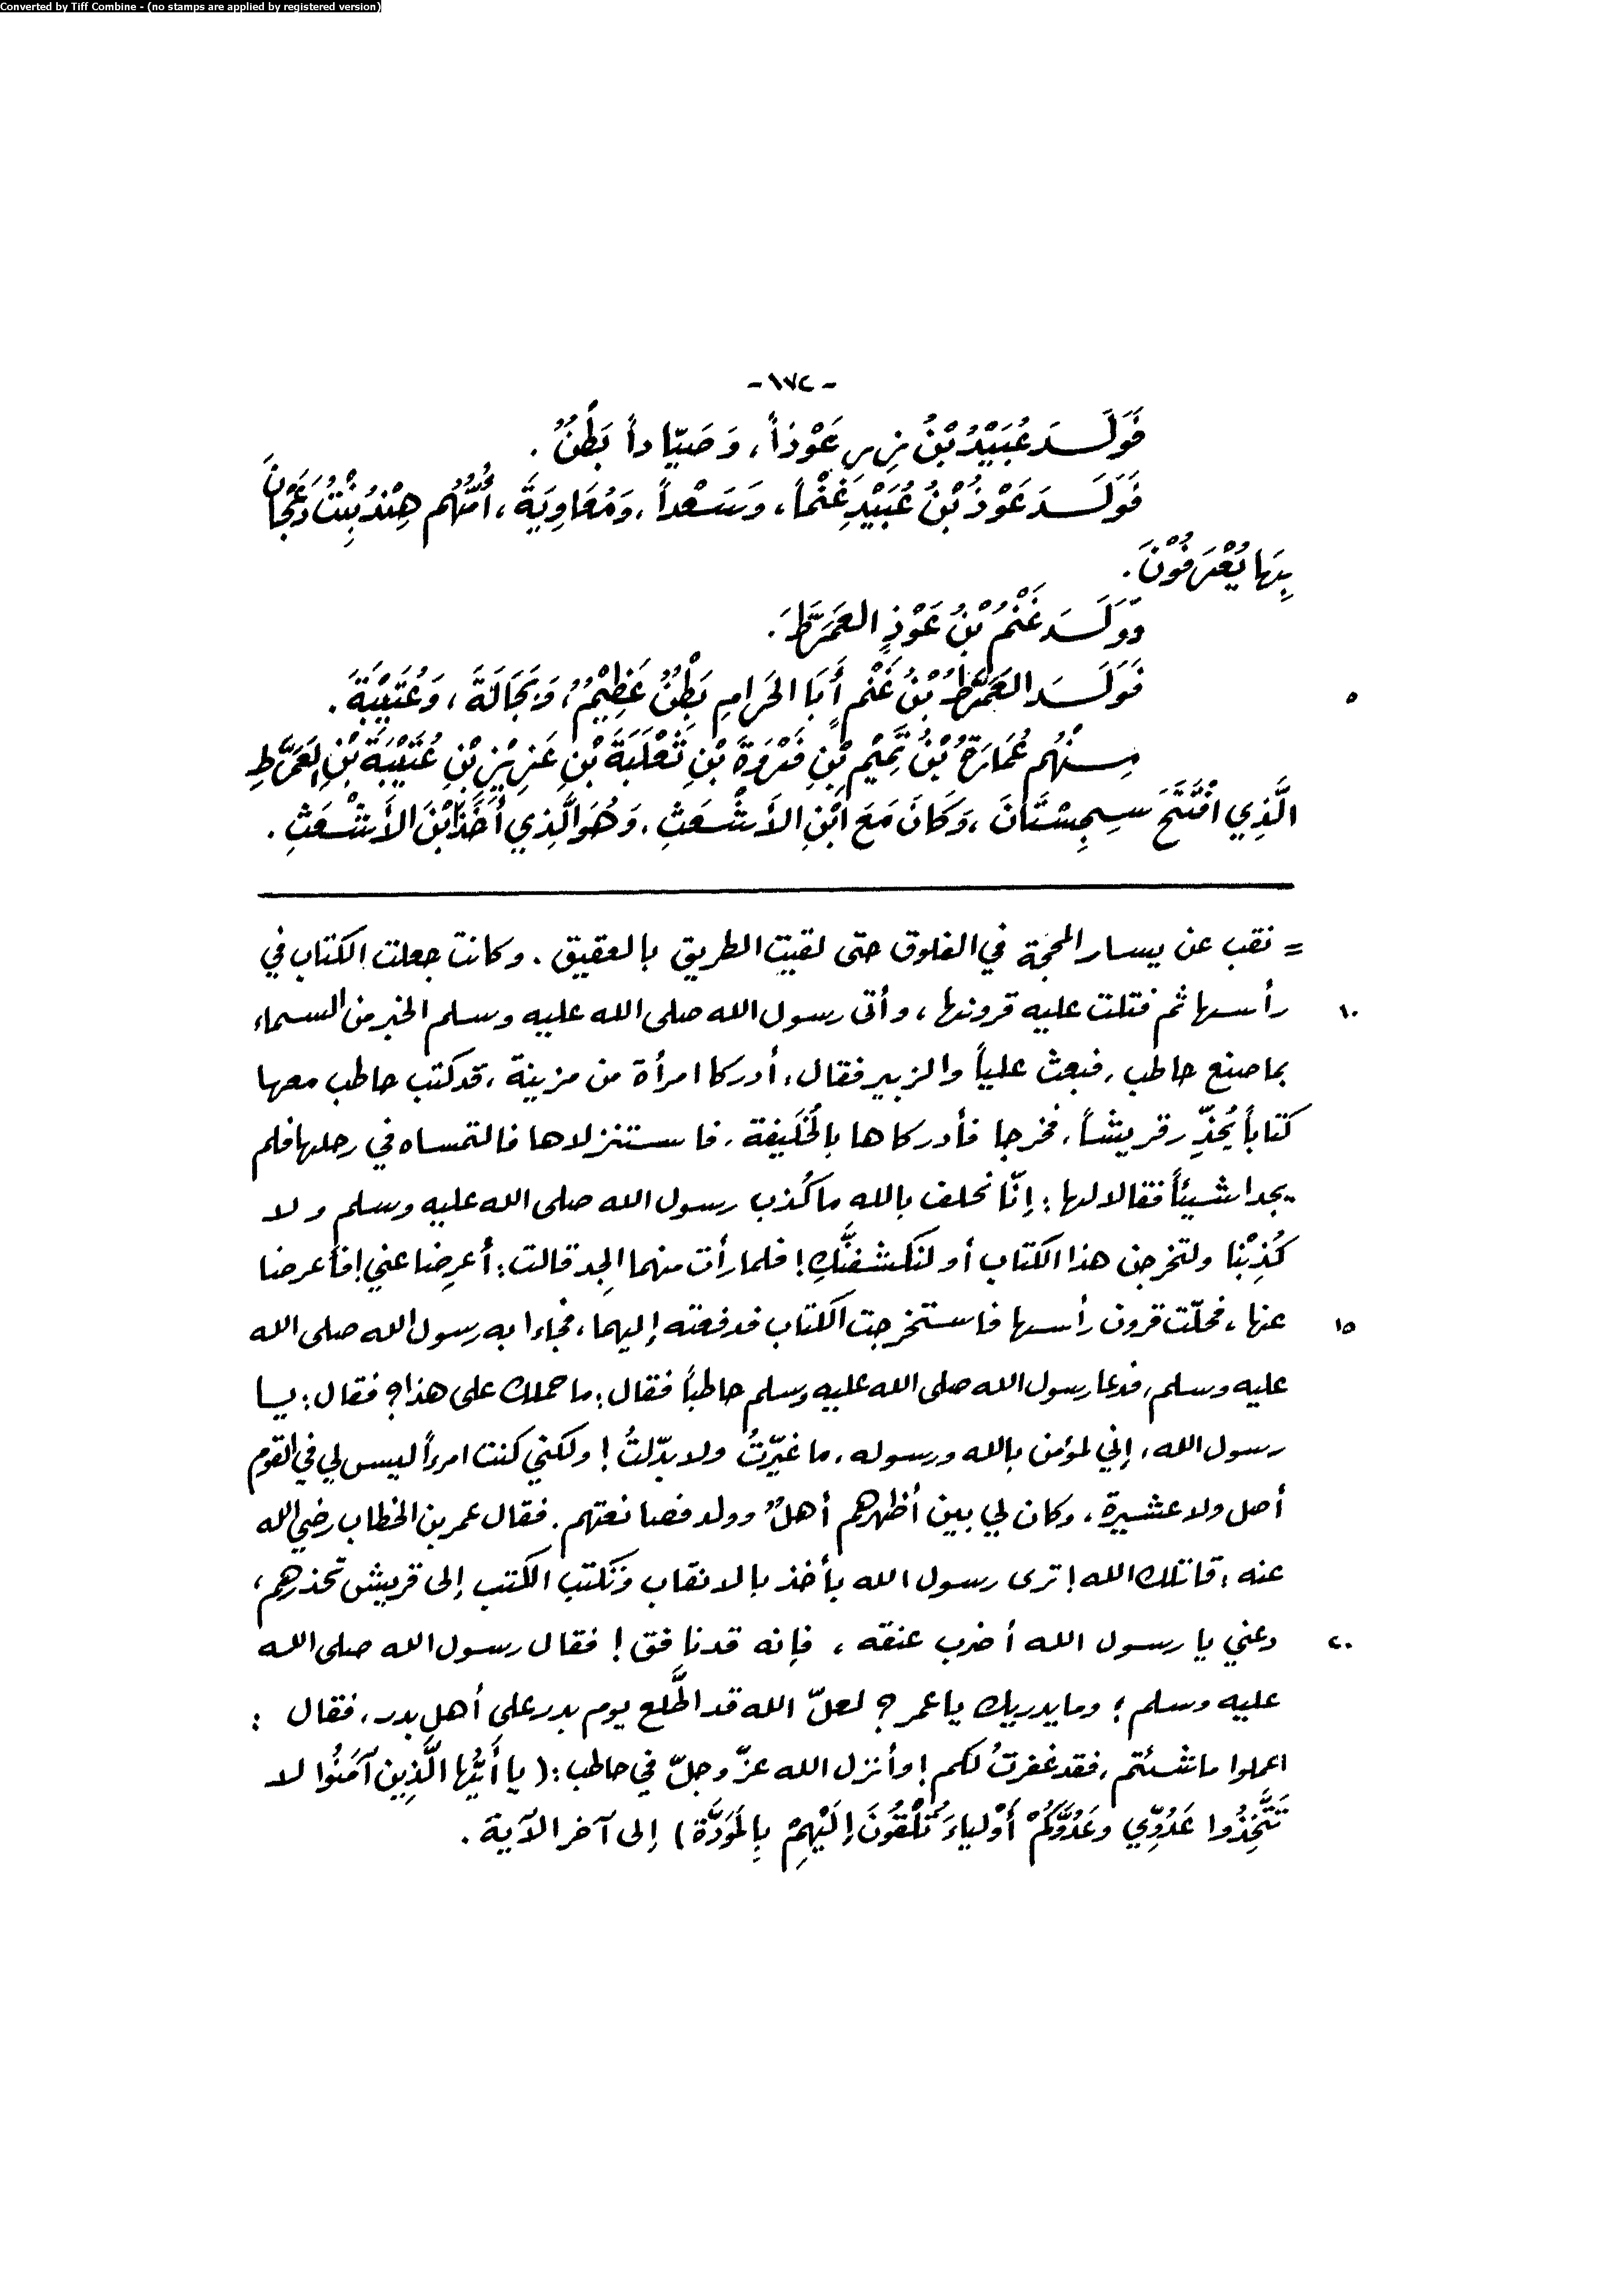 Converted by Tiff Combine - (no stamps are applied by registered version)
- ١٧٢ -
فَوَلَدَ عُبَيْدُ بْنُ زِرٍ عَوْذاً، وَصَيّاداً بَطْنٌ.
فَوَلَدَ عَوْذُ بْنُ عُبَيْدٍ غَنْماً، وَسَعْداً، وَمُعَاوِيَةَ، أُمُّهُم هِنْدُ بِنْتُ دَعْجَانَ
بِهَا يُعْرَفُوْنَ.
وَوَلَدَ غَنْمُ بْنُ عَوْذٍ العَمَرَّطَ.
٥ فَوَلَدَ العَمَرَّطُ بْنُ غَنْمٍ أَبَا الحَرَامِ بَطْنٌ عَظِيْمٌ، وَبَجَالَةَ، وَعُتَيْبَةَ.
مِنْهُم عُمَارَةُ بْنُ تَمِيْمِ بْنِ فَرْوَةَ بْنِ ثَعْلَبَةَ بْنِ عَزِيْزِ بْنِ عُتَيْبَةَ بْنِ العَمَرَّطِ
الَّذِي افْتَتَحَ سِجِسْتَانَ، وَكَانَ مَعَ ابْنِ الأَشْعَثِ. وَهُوَ الَّذِي أَخَذَ ابْنَ الأَشْعَثِ.
= نقب عن يسار المحجّة في الفلوق حتى لقيت الطريق بالعقيق. وكانت جعلت الكتاب في
١٠ رأسها ثم فتلت عليه قرونها، وأتى رسول الله صلى الله عليه وسلم الخبر من السماء
بما صنع حاطب، فبعث علياً والزبير فقال: أدركا امرأة من مزينة، قد كتب حاطب معها
كتاباً يُحذِّر قريشاً، فخرجا فأدركاها بالخُلَيفة، فاستنزلاها فالتمساه في رحلها فلم
يجدا شيئاً فقالا لها: إنّا نحلف بالله ما كُذب رسول الله صلى الله عليه وسلم ولا
كُذِبْنا ولتخرجن هذا الكتاب أو لنكشفنَّكِ! فلما رأت منهما الجِد قالت: أعرِضا عني! فأعرضا
١٥ عنها، فحلّت قرون رأسها فاستخرجت الكتاب فدفعته إليهما، فجاءا به رسول الله صلى الله
عليه وسلم، فدعا رسول الله صلى الله عليه وسلم حاطباً فقال: ما حملك على هذا؟ فقال: يا
رسول الله، إني لمؤمن بالله ورسوله، ما غيّرتُ ولا بدّلتُ! ولكني كنت امرءاً ليس لي في القوم
أصل ولا عشيرة، وكان لي بين أظهرهم أهلٌ وولد فصانعتهم. فقال عمر بن الخطاب رضي الله
عنه: قاتلك الله! ترى رسول الله يأخذ بالانقاب وتكتب الكتب إلى قريش تحذرهم،
٢٠ دعني يا رسول الله أضرب عنقه، فإنه قد نافق! فقال رسول الله صلى الله
عليه وسلم؛ وما يدريك يا عمر؟ لعلّ الله قد اطَّلع يوم بدر على أهل بدر، فقال :
اعملوا ما شئتم، فقد غفرتُ لكم! وأنزل الله عزّ وجلّ في حاطب: (يا أَيُّها الَّذِينَ آمَنُوا لا
تَتَّخِذُوا عَدُوِّي وعَدُوَّكُمْ أَوْلياءَ تُلْقُونَ إلَيْهِمْ بِالمَوَدَّة) إلى آخر الآية.